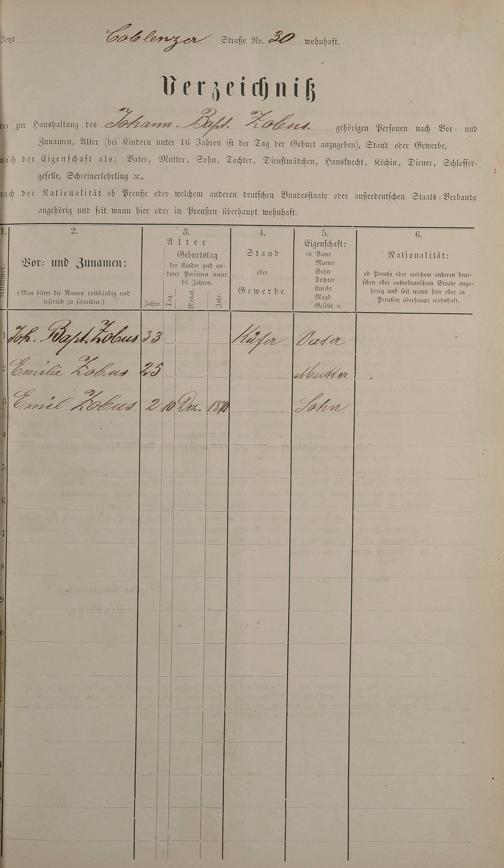 Jetzt Coblenzer Straße No. 30 wohnhaft.
Verzeichniß
der zur Haushaltung des Johann Bapt. Zobus gehörigen Personen nach Vor- und
Zunamen, Alter (bei Kindern unter 16 Jahren ist der Tag der Geburt anzugeben), Stand oder Gewerbe,
nach der Eigenschaft als: Vater, Mutter, Sohn, Tochter, Dienstmädchen, Hausknecht, Köchin, Diener, Schlosser-
geselle, Schreinerlehrling ꝛc.,
nach der Nationalität ob Preuße oder welchem anderen deutschen Bundesstaate oder außerdeutschen Staats-Verbande
angehörig und seit wann hier oder in Preußen überhaupt wohnhaft.
1.
Nummer.
2.
Vor- und Zunamen:
(Man bittet die Namen vollständig und
leserlich zu schreiben.)
3.
Alter
Geburtstag
der Kinder und an-
derer Personen unter
16 Jahren.
Jahre
Tag.
Monat.
Jahr.
4.
Stand
oder
Gewerbe.
5.
Eigenschaft:
ob Vater
Mutter
Sohn
Tochter
Knecht
Magd
Geselle ꝛc.
6.
Nationalität:
ob Preuße oder welchem anderen deut-
schen oder außerdeutschen Staate ange-
hörig und seit wann hier oder in
Preußen überhaupt wohnhaft.
1 Joh. Bapt. Zobus 33 Küfer Vater
2 Emilie Zobus 25 Mutter
3 Emil Zobus 2 10 Dez. 1870 Sohn
4
5
6
7
8
9
0